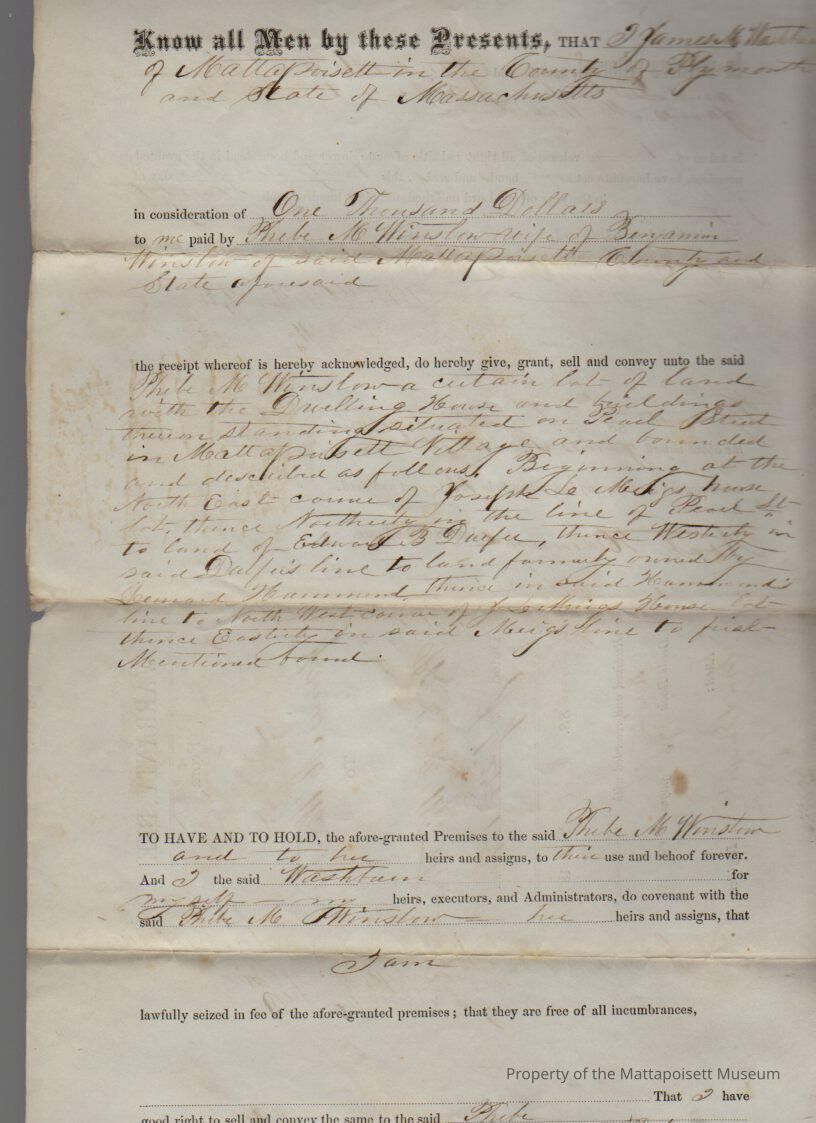 Know all Men by these Presents, THAT I James M Washburn
of Mattapoisett in the County of Plymouth
and State of Massachusetts
in consideration of One Thousand Dollars
to me paid by Phebe M Winslow wife of Benjamin
Winslow of said Mattapoisett County and
State aforesaid
the receipt whereof is hereby acknowledged, do hereby give, grant, sell and convey unto the said
Phebe M Winslow a certain lot of land
with the Dwelling House and buildings
thereon standing situated on Pearl Street
in Mattapoisett Village and bounded
and described as follows. Beginning at the
North East corner of Joseph L Meigs house
lot, thence Northerly in the line of Pearl St
to land of Edward B Dexter, thence Westerly in
said line to land formerly owned by
Leonard Hammond thence in said Hammond's
line to North West corner of J L Meigs House lot
thence Easterly in said Meigs line to first
Mentioned bound.
TO HAVE AND TO HOLD, the afore-granted Premises to the said Phebe M Winslow
and to her heirs and assigns, to their use and behoof forever.
And I the said Washburn for
myself my heirs, executors, and Administrators, do covenant with the
said Phebe M Winslow her heirs and assigns, that
I am
lawfully seized in fee of the afore-granted premises; that they are free of all incumbrances,
Property of the Mattapoisett Museum
That I have
good right to sell and convey the same to the said Phebe